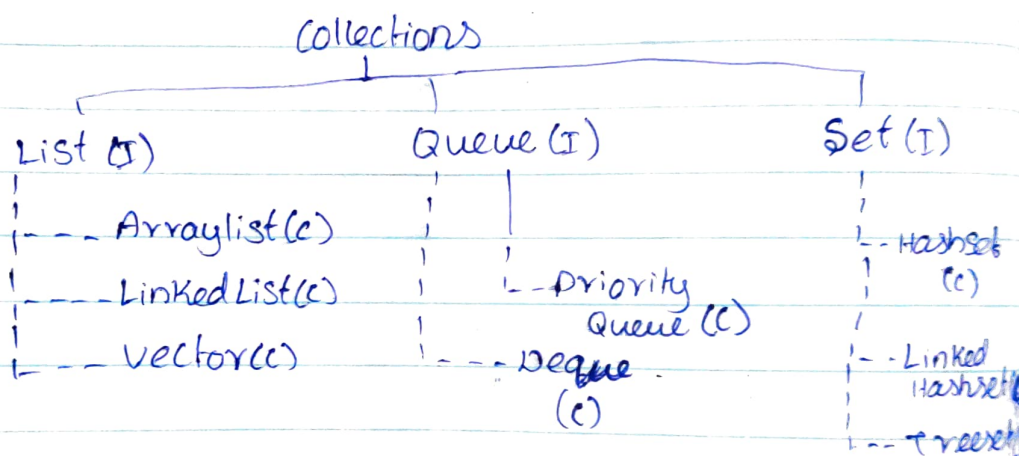 Collections
List (I) Queue (I) Set (I)
Arraylist (C)
Linked List (C)
Vector (C)
Priority
Queue (C)
Deque
(C)
Hashset
(C)
Linked
Hashset
Treeset